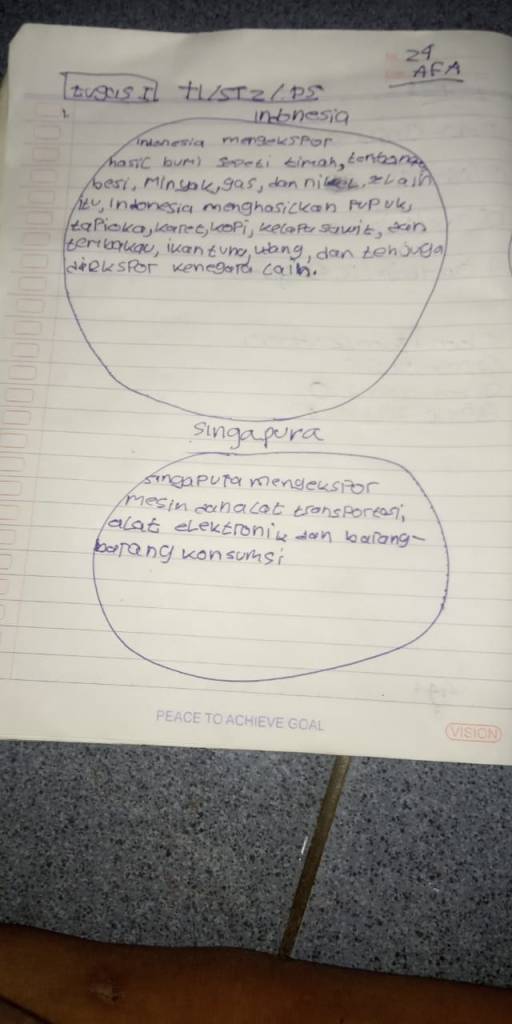 24
AFA
tugas I t1/ST2/.PS
1.
indonesia
indonesia mengekspor
hasil bumi seperti timah, tembaga
besi, Minyak, gas, dan nikel, selain
itu, indonesia menghasilkan pupuk,
tapioka, karet, kopi, kelapa sawit, dan
tembakau, ikan tuna, udang, dan teh juga
diekspor kenegara lain.
singapura
singapura mengekspor
mesin dan alat transportasi,
alat elektronik dan barang-
barang konsumsi
PEACE TO ACHIEVE GOAL
VISION